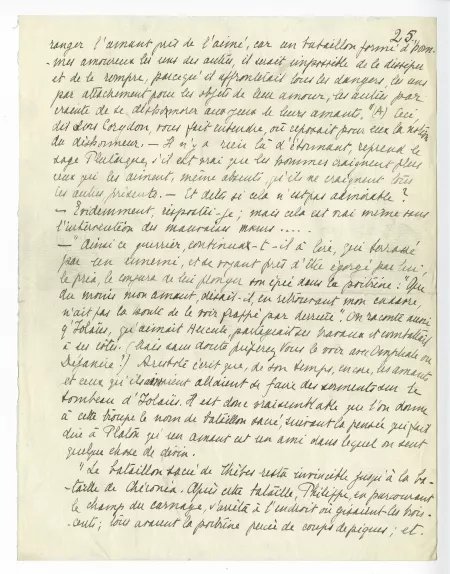 25.
ranger l'amant près de l'aimé, car un bataillon formé d'hom-
mes amoureux les uns des autres, il serait impossible de le dissiper
et de le rompre, parcequ'il affronterait tous les dangers, les uns
par attachement pour les objets de leur amour, les autres par
crainte de se déshonorer aux yeux de leurs amants." (A) Ceci,
dis-vous Corydon, vous fait entendre, où reposait pour eux la notion
du déshonneur. — Il n'y a rien là d'étonnant, reprend le
sage Plutarque, s'il est vrai que les hommes craignent plus
ceux qui les aiment, même absents, qu'ils ne craignent tous
les autres présents. — Et dites si cela n'est pas admirable?
— Évidemment, ripostai-je; mais cela est vrai même sans
l'intervention des mauvaises mœurs.....
— "Ainsi ce guerrier, continua-t-il à lire, qui terrassé
par un ennemi, et se voyant près d'être égorgé par lui,
le pria, le conjura de lui plonger son épée dans la poitrine: "Que
du moins mon amant, disait-il, en retrouvant mon cadavre,
n'ait pas la honte de le voir frappé par derrière". On raconte aussi
q'Iolaüs, qui aimait Hercule, partageait ses travaux et combattait
à ses côtés. (Mais sans doute préférez vous le voir avec Omphale ou
Déjanire?) Aristote écrit que, de son temps, encore, les amants
et ceux qu'ils aimaient allaient se faire des serments sur le
tombeau d'Iolaüs. Il est donc vraisemblable que l'on donna
à cette troupe le nom de bataillon sacré, suivant la pensée qui fait
dire à Platon qu'un amant est un ami dans lequel on sent
quelque chose de divin.
"Le bataillon sacré de Thèbes resta invincible jusqu'à la ba-
taille de Chéronia. Après cette bataille, Philippe, en parcourant
le champ du carnage, s'arrêta à l'endroit où gisaient les trois-
cents; tous avaient la poitrine percée de coups de piques; et.